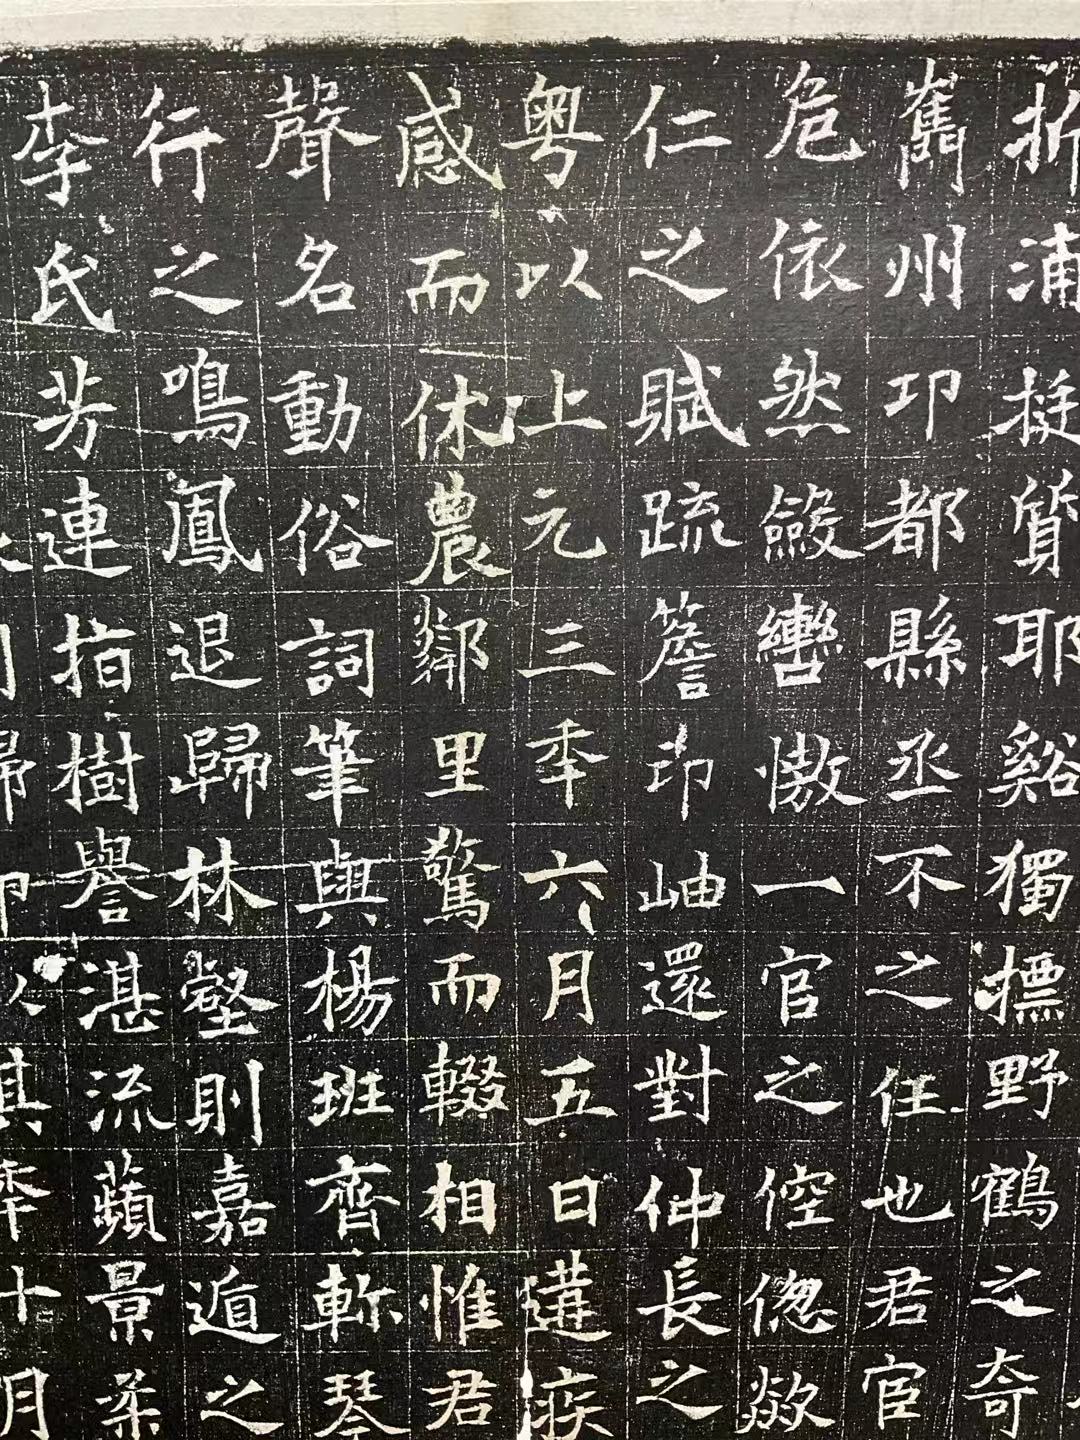 折浦挺質耶谿獨摽野鶴之奇
巂州卭都縣丞不之任也君宦
危依然斂轡慠一官之倥偬欻
仁之賦䟽簷卭岫還對仲長之
粤以上元三秊六月五日遘疾
感而休農鄰里驚而輟相惟君
聲名動俗詞筆與楊班齊斬琴
行之鳴鳳退歸林壑則嘉遁之
李氏芳連指樹譽湛流蘋景柔
歸 其秊十月